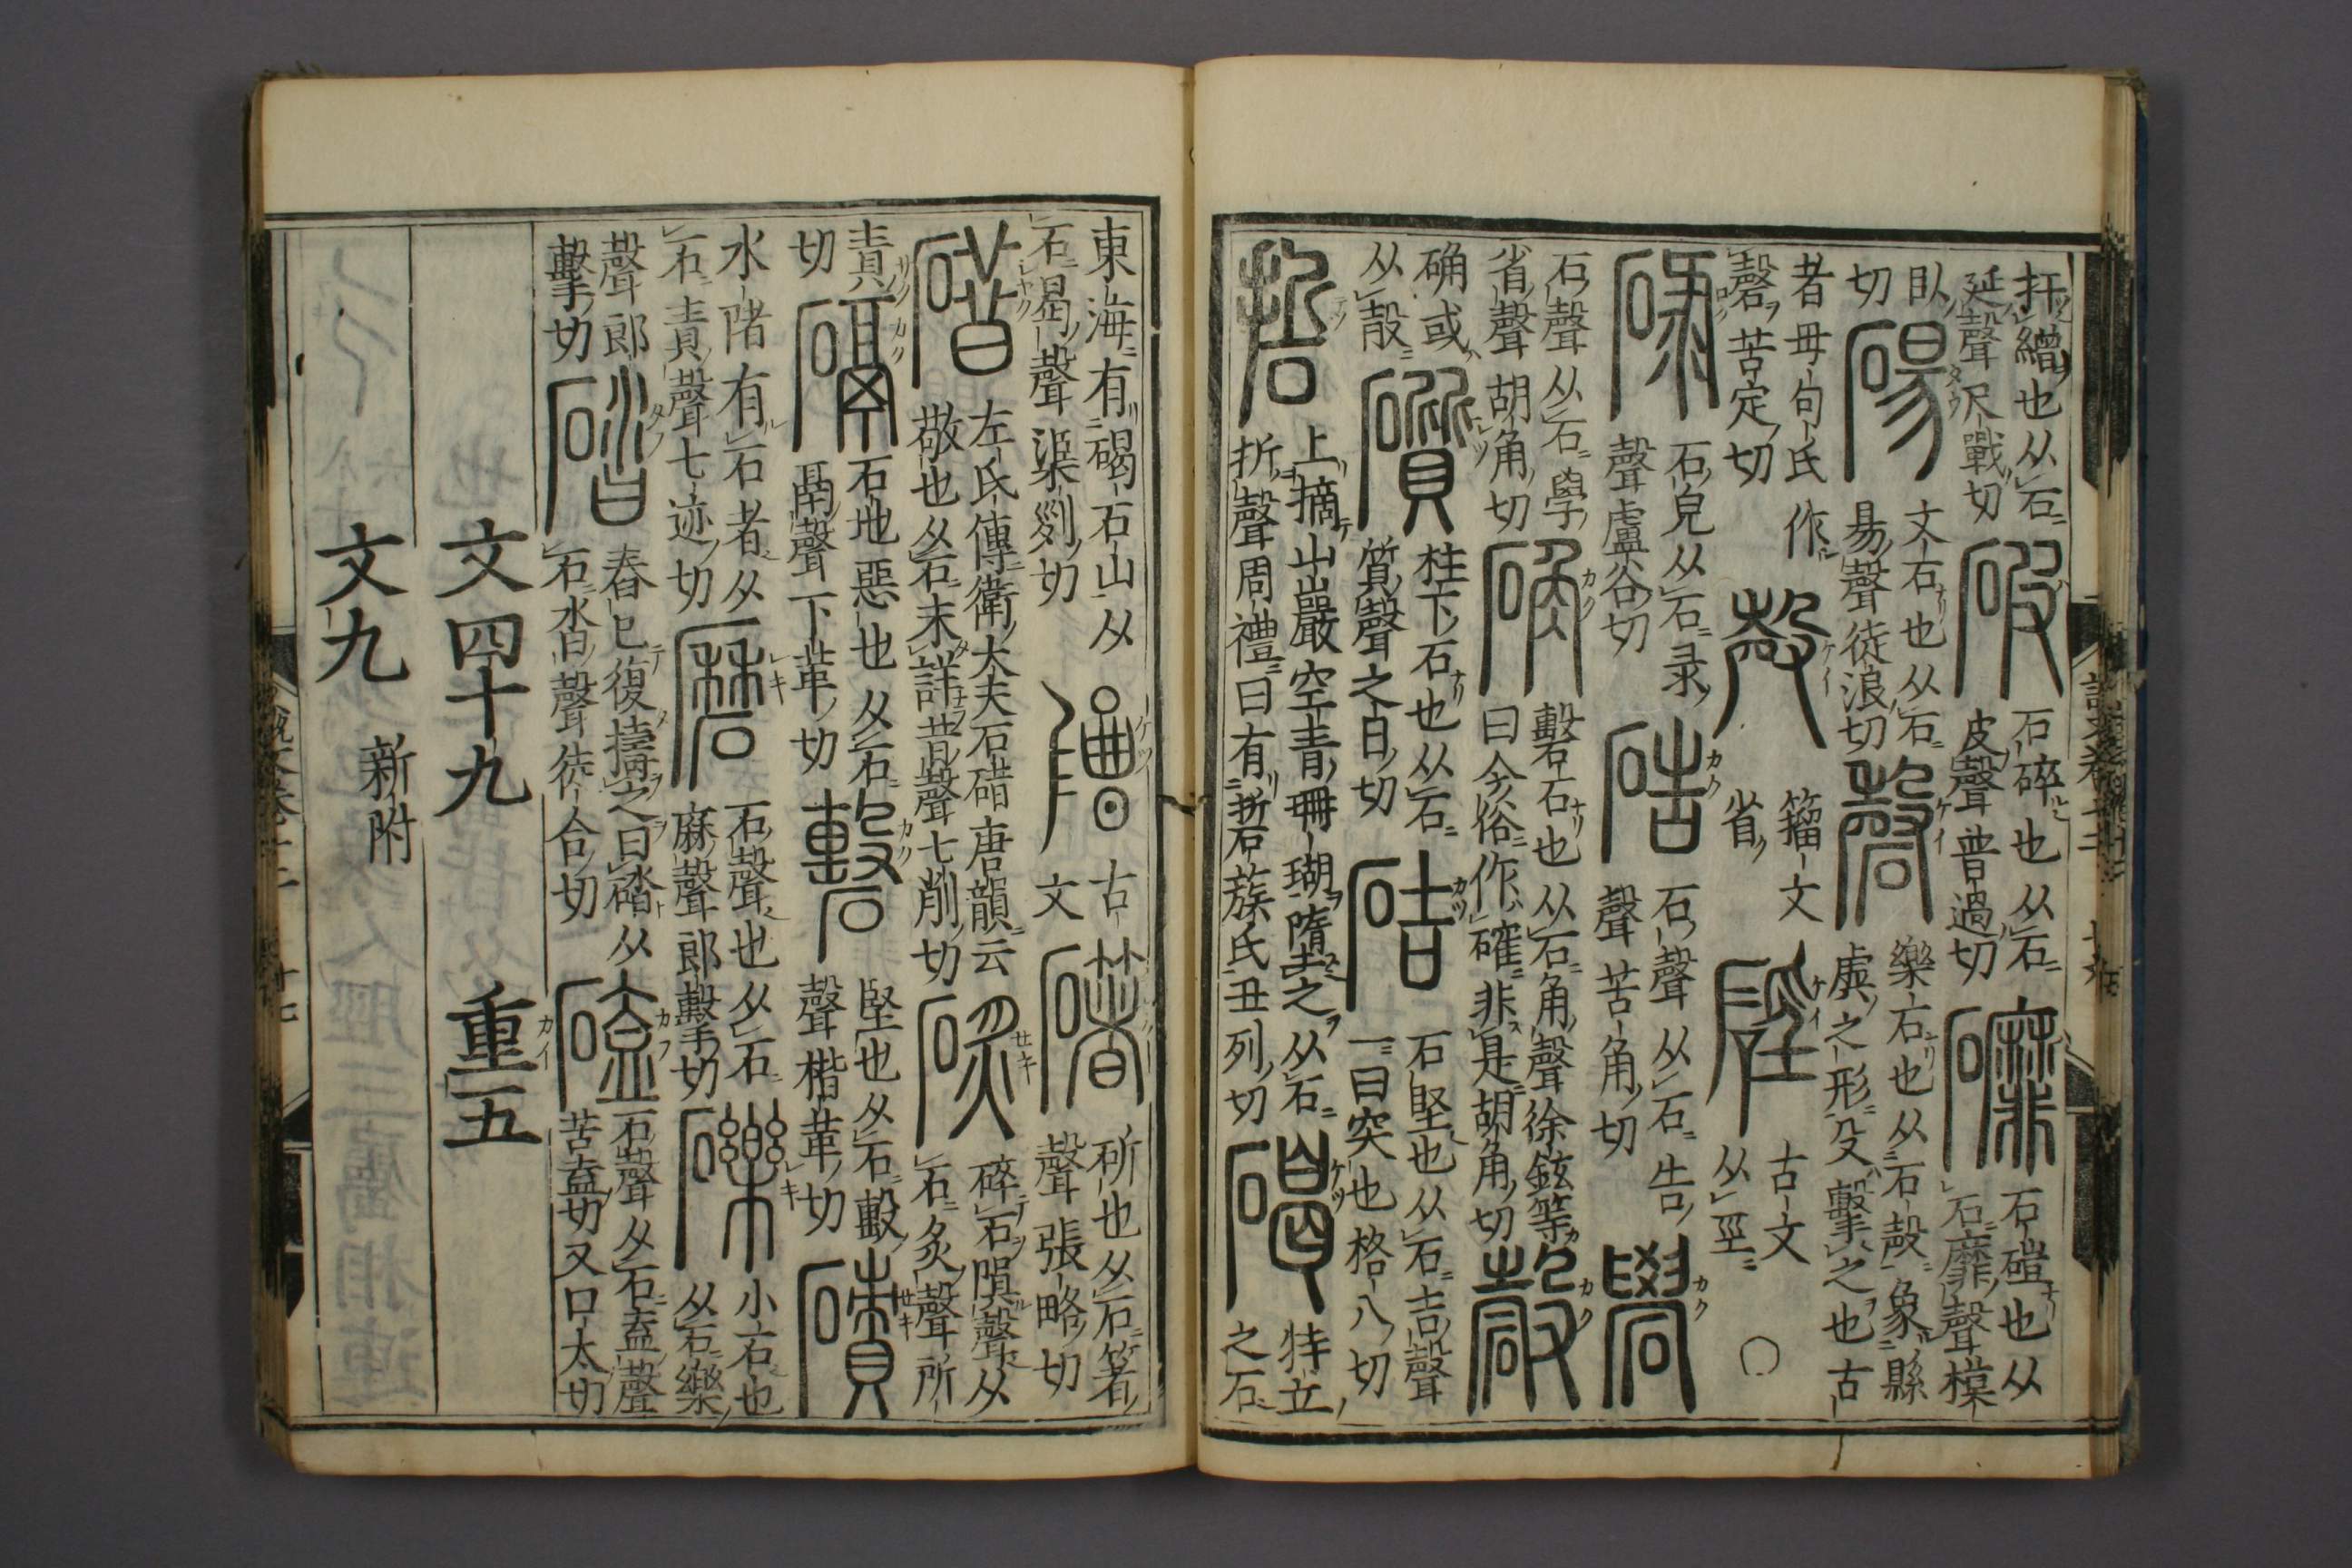 扞繒也从石
延聲尺戰切
破
石碎也从石
皮聲普過切
䃺
石磑也从
石靡聲模
臥
切
碭
文石也从石
昜聲徒浪切
磬
樂石也从石殸象縣
虡之形殳擊之也古
者毋句氏作
磬苦定切
殸
籀文
省
硜
古文
从巠
碌
石皃从石彔
聲盧谷切
硞
石聲从石告
聲苦角切
礐
石聲从石學
省聲胡角切
确
磬石也从石角聲徐鉉等
曰今俗作確非是胡角切
确或
从㱿
礩
柱下石也从石
質聲之日切
硈
石堅也从石吉聲
一曰突也格八切
硩
上摘山巖空青珊瑚墮之从石
折聲周禮曰有硩蔟氏丑列切
碣
特立
之石
東海有碣石山从
石曷聲渠列切
古
文
斫也从石箸
聲張略切
碏
左氏傳衛大夫石碏唐韻云
敬也从石未詳昔聲七削切
碎石隕聲从
石炙聲所
責
切
䃒
石地惡也从石
鬲聲下革切
堅也从石毄
聲楷革切
磧
水陼有石者从
石責聲七迹切
磿
石聲也从石
麻聲郎擊切
礫
小石也
从石樂
聲郎
擊切
䃮
舂已復擣之曰䃮从
石沓聲徒合切
磕
石聲从石盍聲
苦盍切又口太切
文四十九 重五
文九 新附